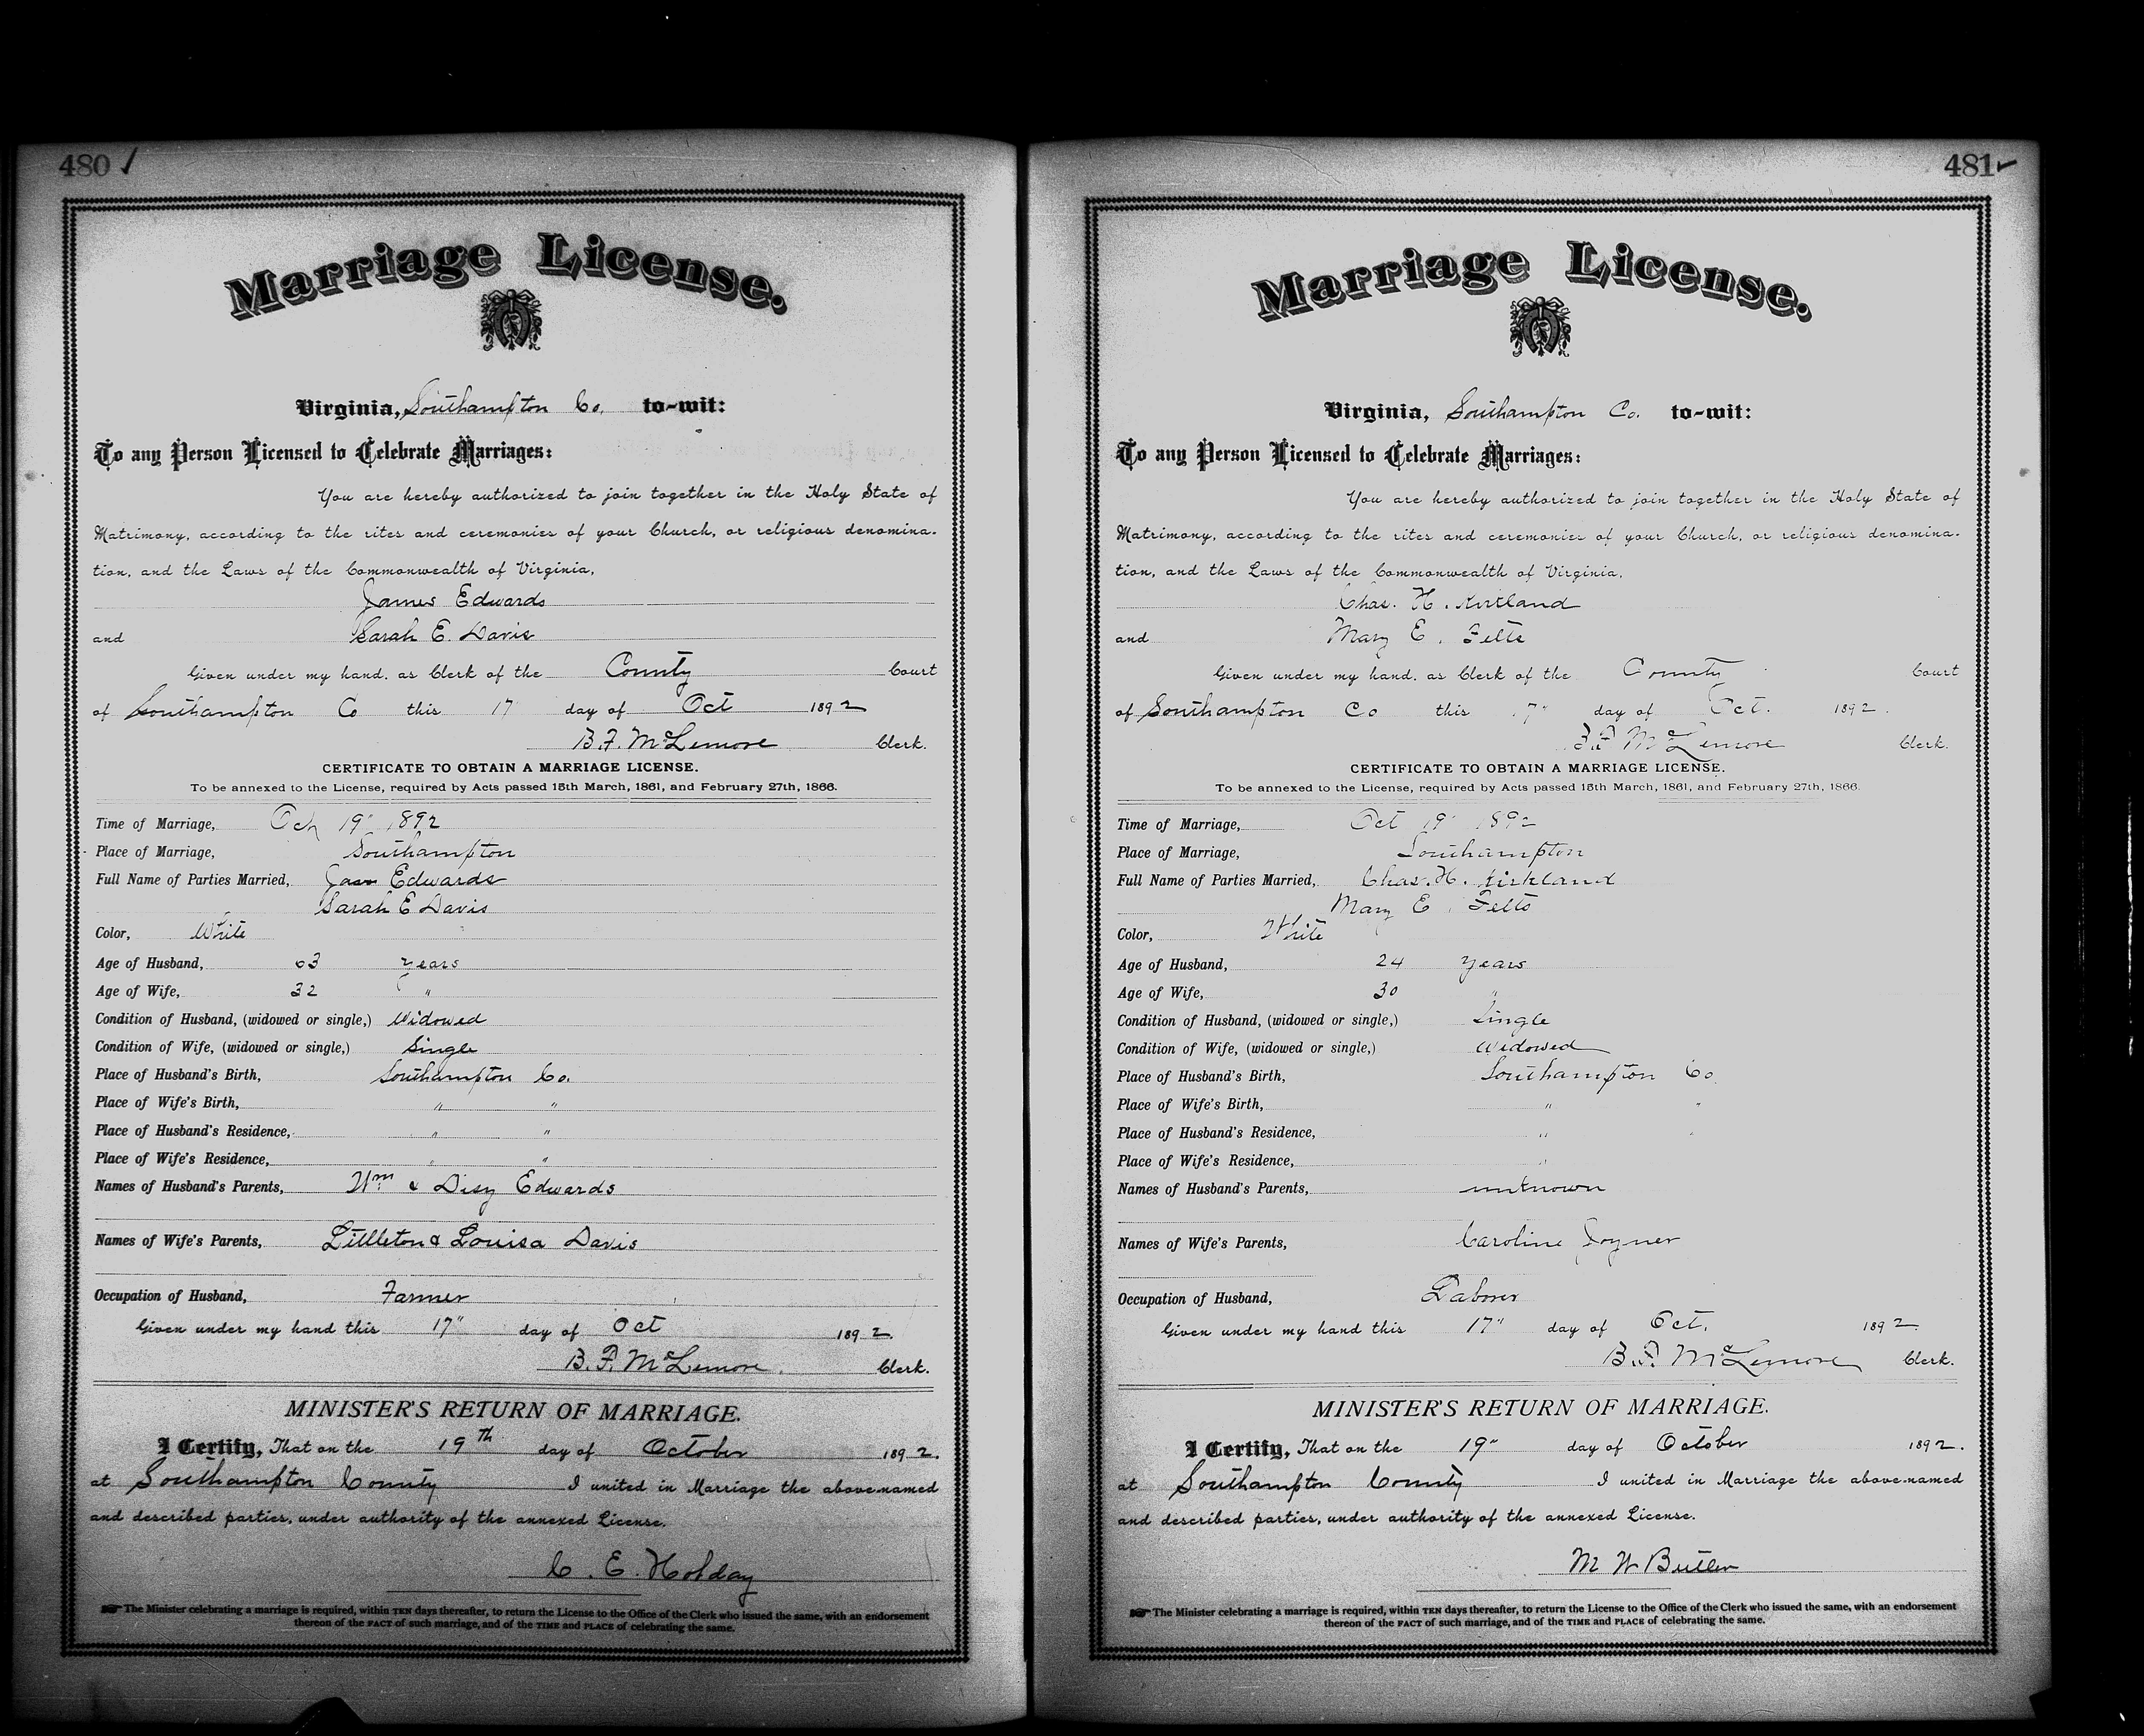 480
Marriage License.
Virginia, Southampton Co. to-wit:
To any Person Licensed to Celebrate Marriages:
You are hereby authorized to join together in the Holy State of
Matrimony, according to the rites and ceremonies of your Church, or religious denomina-
tion, and the Laws of the Commonwealth of Virginia,
James Edwards
and Sarah E. Davis
Given under my hand, as Clerk of the County Court
of Southampton Co this 17 day of Oct 1892
B. F. McLemore Clerk.
CERTIFICATE TO OBTAIN A MARRIAGE LICENSE.
To be annexed to the License, required by Acts passed 15th March, 1861, and February 27th, 1866.
Time of Marriage, Oct 19" 1892
Place of Marriage, Southampton
Full Name of Parties Married, Jas Edwards
Sarah E Davis
Color, White
Age of Husband, 63 years
Age of Wife, 32 "
Condition of Husband, (widowed or single,) Widowed
Condition of Wife, (widowed or single,) Single
Place of Husband's Birth, Southampton Co.
Place of Wife's Birth, " "
Place of Husband's Residence, " "
Place of Wife's Residence, " "
Names of Husband's Parents, Wm & Disy Edwards
Names of Wife's Parents, Littleton & Louisa Davis
Occupation of Husband, Farmer
Given under my hand this 17" day of Oct 1892.
B. F. McLemore. Clerk.
MINISTER'S RETURN OF MARRIAGE.
I Certify, That on the 19th day of October 1892.
at Southampton County I united in Marriage the above-named
and described parties, under authority of the annexed License.
C. E. Hobday
The Minister celebrating a marriage is required, within TEN days thereafter, to return the License to the Office of the Clerk who issued the same, with an endorsement
thereon of the FACT of such marriage, and of the TIME and PLACE of celebrating the same.
481
Marriage License.
Virginia, Southampton Co. to-wit:
To any Person Licensed to Celebrate Marriages:
You are hereby authorized to join together in the Holy State of
Matrimony, according to the rites and ceremonies of your Church, or religious denomina-
tion, and the Laws of the Commonwealth of Virginia,
Chas. H. Kirtland
and Mary E. Felts
Given under my hand, as Clerk of the County Court
of Southampton Co this 17" day of Oct. 1892.
B. F. McLemore Clerk.
CERTIFICATE TO OBTAIN A MARRIAGE LICENSE.
To be annexed to the License, required by Acts passed 15th March, 1861, and February 27th, 1866.
Time of Marriage, Oct 19" 1892
Place of Marriage, Southampton
Full Name of Parties Married, Chas. H. Kirkland
Mary E. Felts
Color, White
Age of Husband, 24 years
Age of Wife, 30 "
Condition of Husband, (widowed or single,) Single
Condition of Wife, (widowed or single,) Widowed
Place of Husband's Birth, Southampton Co.
Place of Wife's Birth, " "
Place of Husband's Residence, " "
Place of Wife's Residence, "
Names of Husband's Parents, unknown
Names of Wife's Parents, Caroline Joyner
Occupation of Husband, Laborer
Given under my hand this 17" day of Oct. 1892.
B. F. McLemore Clerk.
MINISTER'S RETURN OF MARRIAGE.
I Certify, That on the 19" day of October 1892.
at Southampton County I united in Marriage the above-named
and described parties, under authority of the annexed License.
M W Butler
The Minister celebrating a marriage is required, within TEN days thereafter, to return the License to the Office of the Clerk who issued the same, with an endorsement
thereon of the FACT of such marriage, and of the TIME and PLACE of celebrating the same.